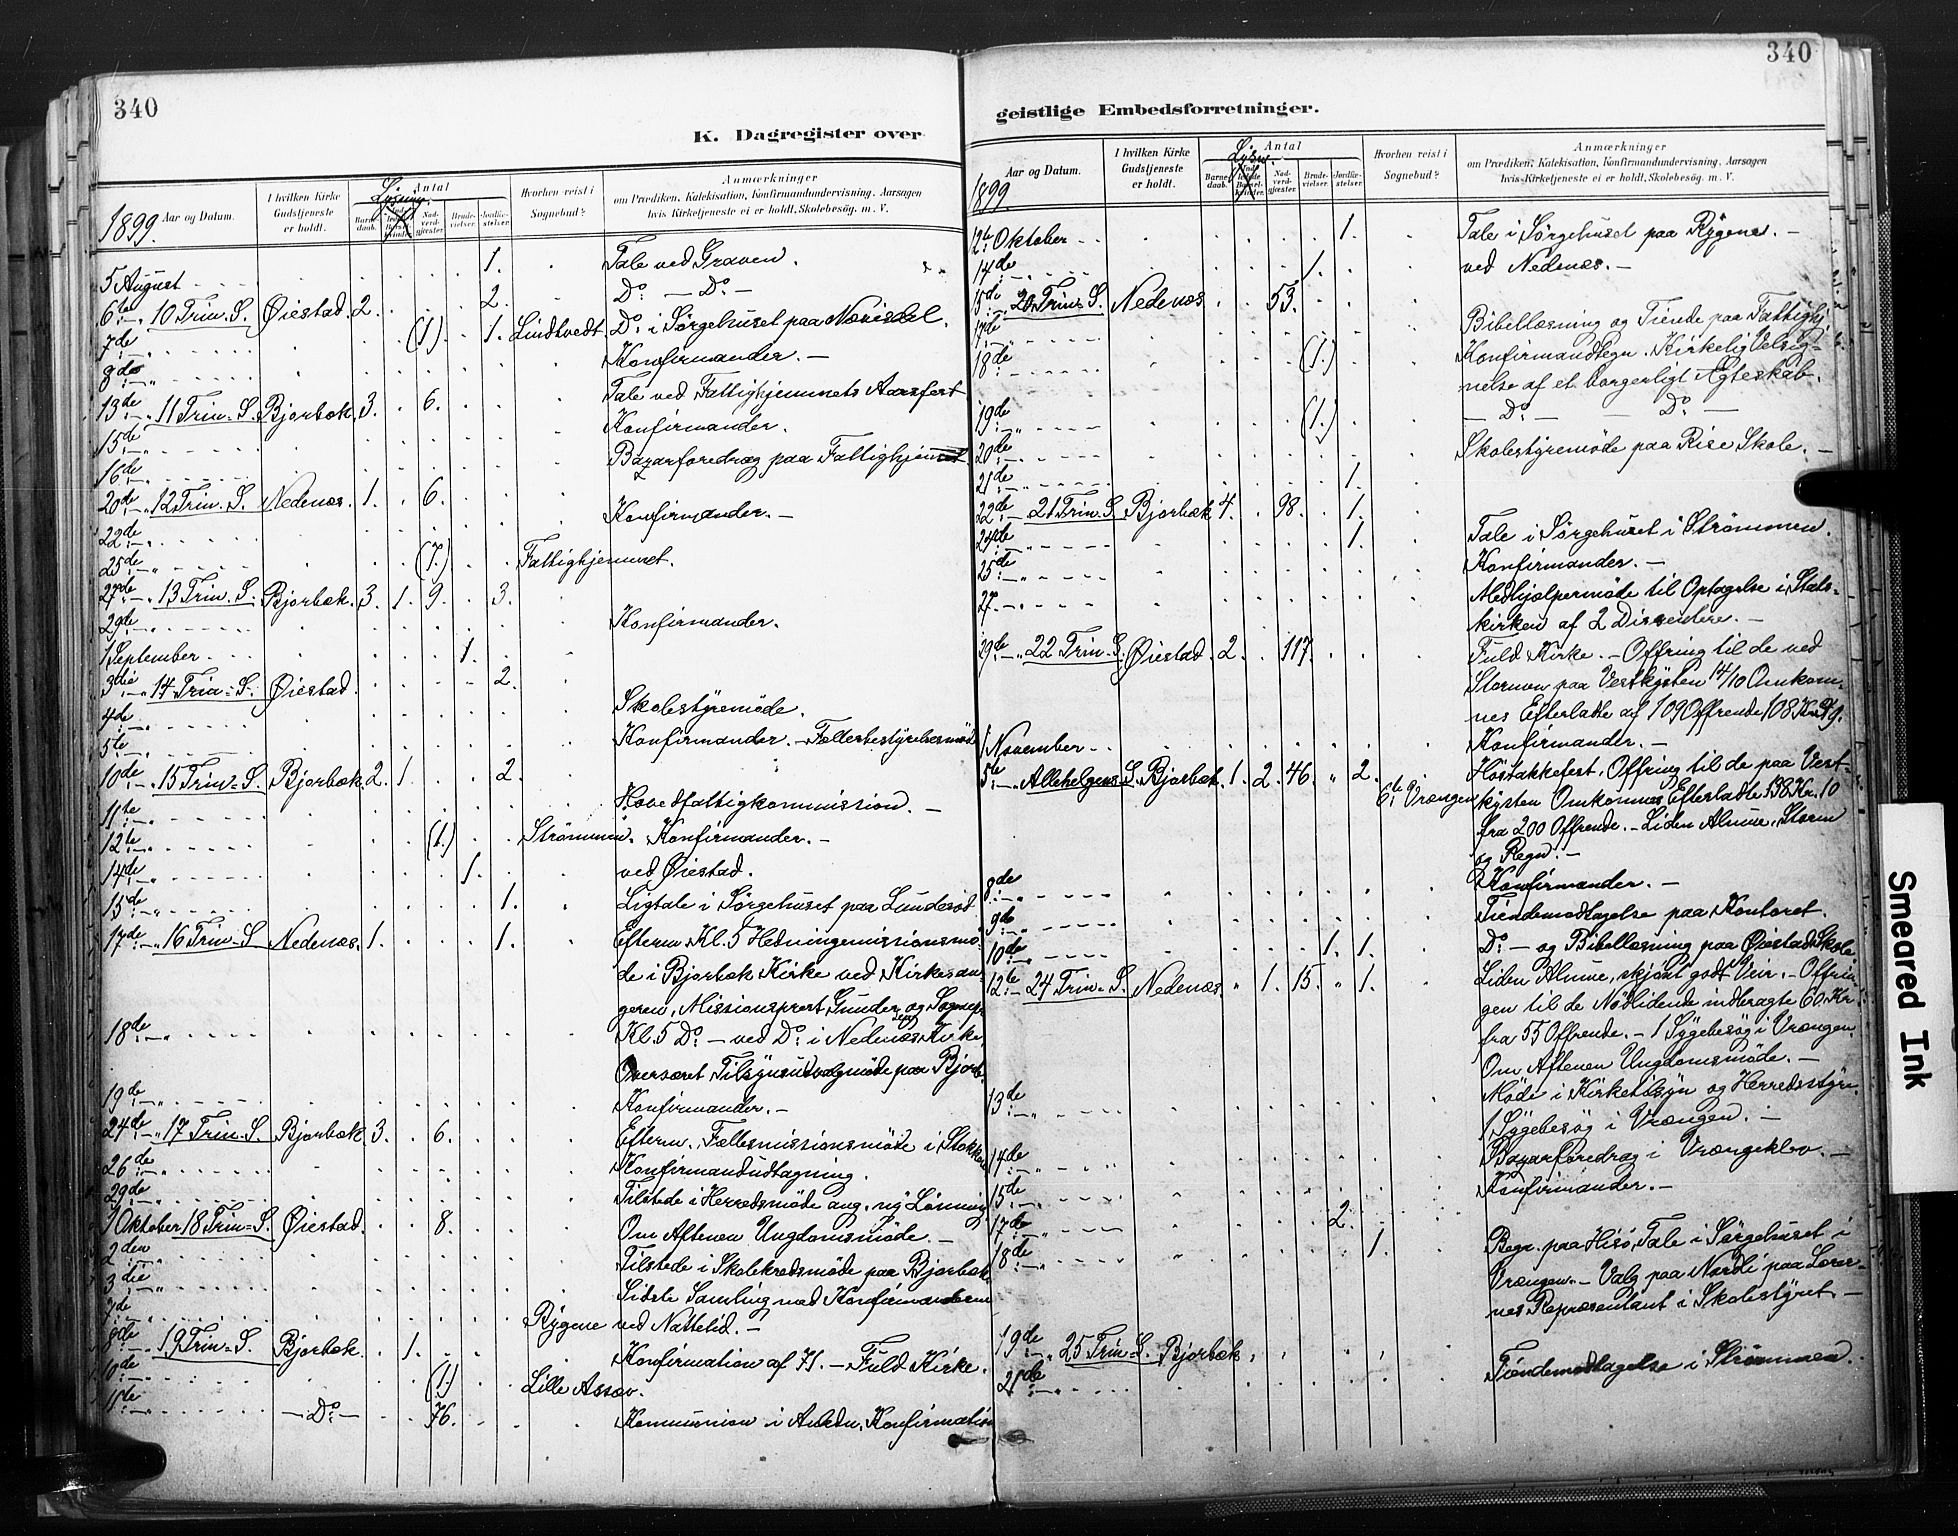 340
K. Dagregister over
1899. Aar og Datum. I hvilken Kirke Gudstjeneste er holdt. Antal Lysning. Barnedaab. Nadverdgjæster. Brudevielser. Jordfæstelser. Hvorhen reist i Sognebud? Anmærkninger om Prædiken, Katekisation, Konfirmandundervisning, Aarsagen hvis Kirketjeneste ei er holdt, Skolebesøg, m. V.
5 August 1. Tale ved Graven.
6te 10 Trin. S. Øiestad. 2. 2. Do — Do —
7de (1). 1. Lindtvedt. Do i Sørgehuset paa
8de Konfirmander. —
13de 11 Trin. S. Bjorbæk. 3. 6. Tale ved Fattighjemmets Aarsfest
15de Konfirmander.
16de Bazarforedrag paa Fattighjemmet
20de 12 Trin. S. Nedenæs. 1. 6.
22de Konfirmander. —
25de (7.) Fattighjemmet.
27de 13 Trin. S. Bjorbæk. 3. 1. 9. 3.
29de Konfirmander.
1 September 1.
3die 14 Trin. S. Øiestad. 2.
4de Skolestyremøde.
5te Konfirmander. — Fællesbestyrelsesmøde
10de 15 Trin. S. Bjorbæk. 2. 1. 2.
11te Hovedfattigkommission. —
12te (1.) Strømmen. Konfirmander. —
14de 1. ved Øiestad.
15de 1. Ligtale i Sørgehuset paa Lundesød
17de 16 Trin. S. Nedenæs. 1. 1. Efterm. Kl. 5 Hedningemissionsmø-
de i Bjorbæk Kirke ved Kirkesan-
geren, Missionsprest Gunder og Sognepr.
18de Kl. 5 Do — ved Do i Nedenæs Kirke.
Tilsynsudvalgmøde paa Bjorb.
19de Konfirmander. —
24de 17 Trin. S. Bjorbæk. 3. 6. Efterm. Fællesmissionsmøde i Stokken
26de Konfirmandudtagning.
29de Tilstede i Herredsmøde ang. ny Lønning
1 Oktober 18 Trin. S. Øiestad. 8. Om Aftenen Ungdomsmøde. —
2den Tilstede i Skolekredsmøde paa Bjorbæk
3die Sidste Samling med Konfirmanderne
7de Rygene ved Nattetid. —
8de 19 Trin. S. Bjorbæk. 1. Konfirmation af 71. — Fuld Kirke.
10de (1.) Lille Assev.
11te — Do — 76. Kommunion i Anledn. Konfirmation
340
geistlige Embedsforretninger.
1899. Aar og Datum. I hvilken Kirke Gudstjeneste er holdt. Antal Barnedaab. Nadverdgjæster. Brudevielser. Jordfæstelser. Hvorhen reist i Sognebud? Anmærkninger om Prædiken, Katekisation, Konfirmandundervisning, Aarsagen hvis Kirketjeneste ei er holdt, Skolebesøg, m. V.
12te Oktober 1. Tale i Sørgehuset paa Rygene. —
14de 1. ved Nedenæs. —
15de 20 Trin. S. Nedenæs 53.
17de Bibellæsning og Tiende paa Fattighj.
18de (1.) Konfirmandtegn. Kirkelig Velsig-
nelse af et borgerligt Ægteskab.
19de (1.) — Do — Do —
20de Skolestyremøde paa Rise Skole. —
21de 1.
22de 21 Trin. S. Bjorbæk 4. 98. 1.
24de 1. Tale i Sørgehuset i Strømmen.
25de Konfirmander. —
27. Medhjælpermøde til Optagelse i Stats-
kirken af 2 Dissentere. —
29de 22 Trin. S. Øiestad. 2. 117. Fuld Kirke. — Offring til de ved
Stormen paa Vestkysten 14/10 Omkom-
nes Efterladte af 109 Offrende 108 Kr.
1 November Konfirmander. —
5te Allehelgens S. Bjorbæk. 1. 2. 46. 2. 6te Vrængen Høstakkefest. Offring til de paa Vest-
kysten Omkomnes Efterladte 138 Kr. 10
fra 200 Offrende. — Liden Almue, Storm
og Regn. —
8de Konfirmander. —
9de Tiendemodtagelse paa Kontoret.
10de 1. 1. Do — og Bibellæsning paa Øiestad Skole
12te 24 Trin. S. Nedenæs. 1. 15. 1. Liden Almue, skjønt godt Veir. — Offrin-
gen til de Nødlidende indbragte 60 Kr.
fra 55 Offrende. — 1 Sygebesøg i Vrængen.
Om Aftenen Ungdomsmøde. —
13de Møde i Kirketilsyn og Herredsstyre
1 Sygebesøg i Vrængen. —
14de Bazarforedrag i Vrængeklev. —
15de Konfirmander. —
17de 2.
18de 1. Begr. paa Hisø, Tale i Sørgehuset i
Vrængen. — Valg paa Nordli paa Lærer-
nes Repræsentant i Skolestyret. —
19de 25 Trin. S. Bjorbæk.
21de Tiendemodtagelse i Strømmen.
Smeared Ink